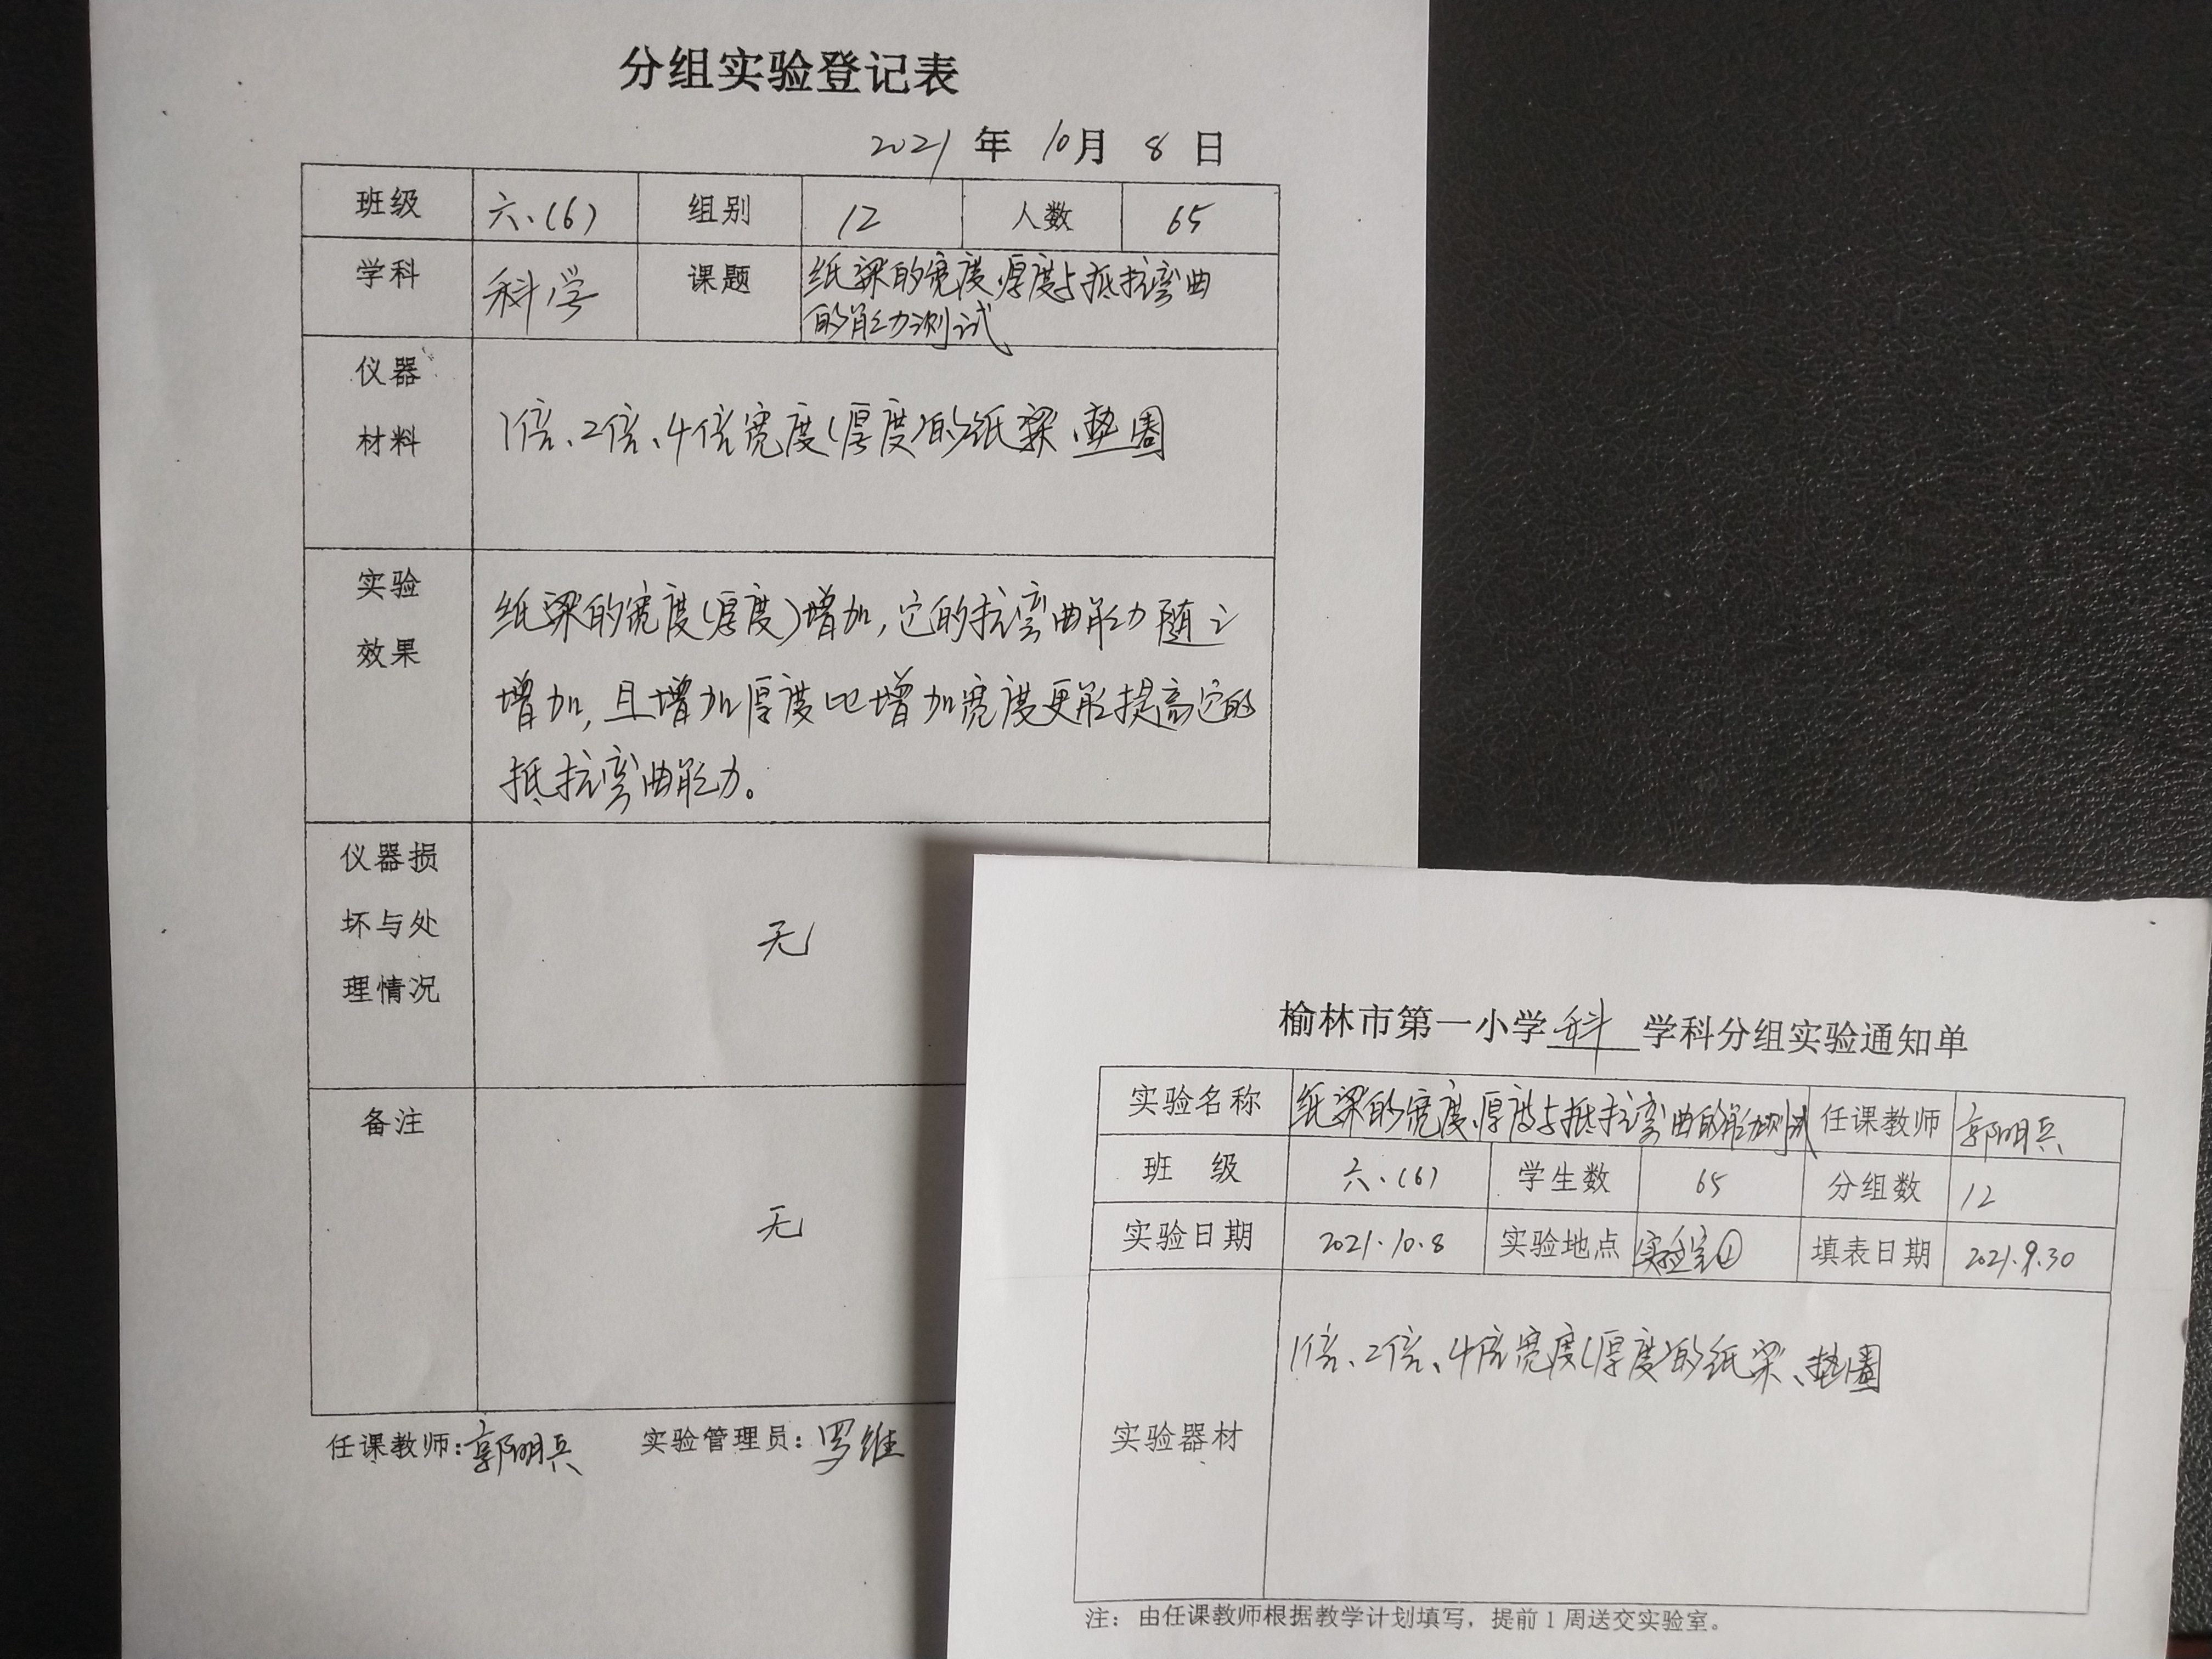 分组实验登记表
2021 年 10月 8 日
班级 六、(6) 组别 12 人数 65
学科 科学 课题 纸梁的宽度、厚度与抵抗弯曲
的能力测试
仪器
材料
1倍、2倍、4倍宽度(厚度)的纸梁、垫圈
实验
效果
纸梁的宽度(厚度)增加,它的抗弯曲能力随之
增加,且增加厚度比增加宽度更能提高它的
抵抗弯曲能力。
仪器损
坏与处
理情况
无
备注
无
任课教师:郭明兵 实验管理员:罗维
榆林市第一小学 科 学科分组实验通知单
实验名称 纸梁的宽度、厚度与抵抗弯曲的能力测试 任课教师 郭明兵
班 级 六、(6) 学生数 65 分组数 12
实验日期 2021.10.8 实验地点 实验室 填表日期 2021.9.30
实验器材
1倍、2倍、4倍宽度(厚度)的纸梁、垫圈
注:由任课教师根据教学计划填写,提前1周送交实验室。